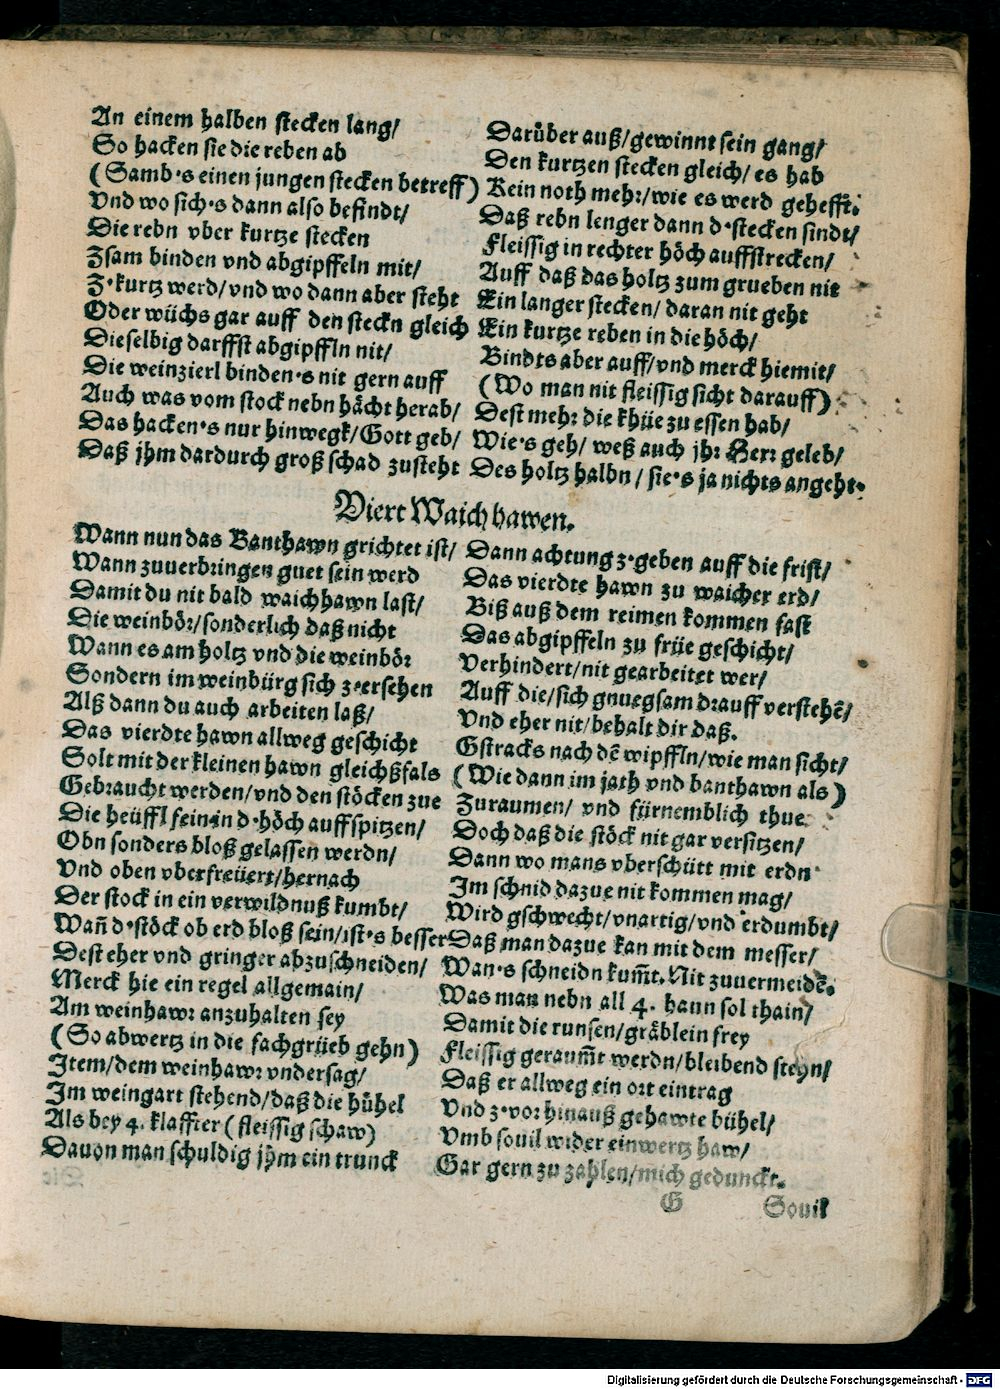 An einem halben stecken lang/ Darüber auß/gewinnt sein gang/
So hacken sie die reben ab Den kurtzen stecken gleich/ es hab
(Samb's einen jungen stecken betreff) Kein noth mehr/wie es werd gehefft:
Vnd wo sich's dann also befindt/ Daß rebn lenger dann d'stecken sindt/
Die rebn vber kurtze stecken Fleissig in rechter höch auffstrecken/
Zsam binden vnd abgipffeln mit/ Auff daß das holtz zum grueben nit
Z'kurtz werd/vnd wo dann aber steht Ein langer stecken/ daran nit geht
Oder wüchs gar auff den steckn gleich Ein kurtze reben in die höch/
Dieselbig darffst abgipffln nit/ Bindts aber auff/vnd merck hiemit/
Die weinzierl binden's nit gern auff (Wo man nit fleissig sicht darauff)
Auch was vom stock nebn hächt herab/ Dest mehr die khüe zu essen hab/
Das hacken's nur hinwegk/Gott geb/ Wie's geh/ weß auch jhr Herr geleb/
Daß jhm dardurch groß schad zusteht Des holtz halbn/ sie's ja nichts angeht.
Viert Waich hawen.
Wann nun das Banthawn grichtet ist/ Dann achtung z'geben auff die frist/
Wann zuuerbringen guet sein werd Das vierdte hawn zu waicher erd/
Damit du nit bald waichhawn last/ Biß auß dem reimen kommen fast
Die weinbör/sonderlich daß nicht Das abgipffeln zu früe geschicht/
Wann es am holtz vnd die weinbör Verhindert/nit gearbeitet wer/
Sondern im weinbürg sich z'ersehen Auff die/sich gnuegsam drauff verstehē/
Alß dann du auch arbeiten laß/ Vnd eher nit/behalt dir daß.
Das vierdte hawn allweg geschicht Gstracks nach dē wipffln/wie man sicht/
Solt mit der kleinen hawn gleichßfals (Wie dann im jath vnd banthawn als)
Gebraucht werden/vnd den stöcken zue Zuraumen/ vnd fürnemblich thue
Die heüffl fein in d'höch auffspitzen/ Doch daß die stöck nit gar versitzen/
Obn sonders bloß gelassen werdn/ Dann wo mans vberschütt mit erdn
Vnd oben vberfreüert/hernach Im schnid dazue nit kommen mag/
Der stock in ein verwildnuß kumbt/ Wird gschwecht/vnartig/vnd erdumbt/
Wañ d'stöck ob erd bloß sein/ist's besser Daß man dazue kan mit dem messer/
Dest eher vnd gringer abzuschneiden/ Wan's schneidn kum̃t. Nit zuuermeidē.
Merck hie ein regel allgemain/ Was man nebn all 4. haun sol thain/
Am weinhawr anzuhalten sey Damit die runsen/gräblein frey
(So abwertz in die fachgrüeb gehn) Fleissig geraum̃t werdn/bleibend stehn/
Item/dem weinhawr vndersag/ Daß er allweg ein ort eintrag
Im weingart stehend/daß die hühel Vnd z'vor hinauß gehawte bühel/
Als bey 4. klaffter (fleissig schaw) Vmb souil wider einwertz haw/
Dauon man schuldig jhm ein trunck Gar gern zu zahlen/mich gedunckt.
G Souil
Digitalisierung gefördert durch die Deutsche Forschungsgemeinschaft - DFG